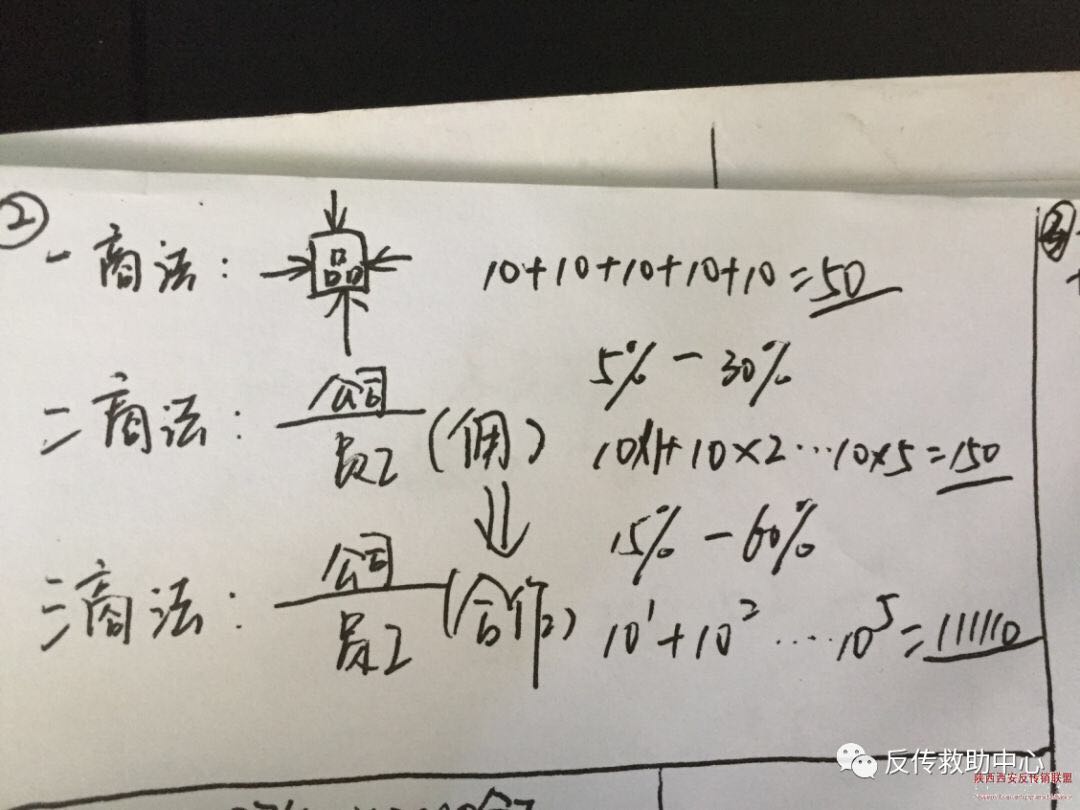 ②
一商法: 品 10+10+10+10+10=50
5%-30%
二商法: 公司 员工 (佣) 10×1+10×2…10×5=150
15%-60%
三商法: 公司 员工 (合作) 10¹+10²….10⁵=111110
反传救助中心
陕西西安反传销联盟